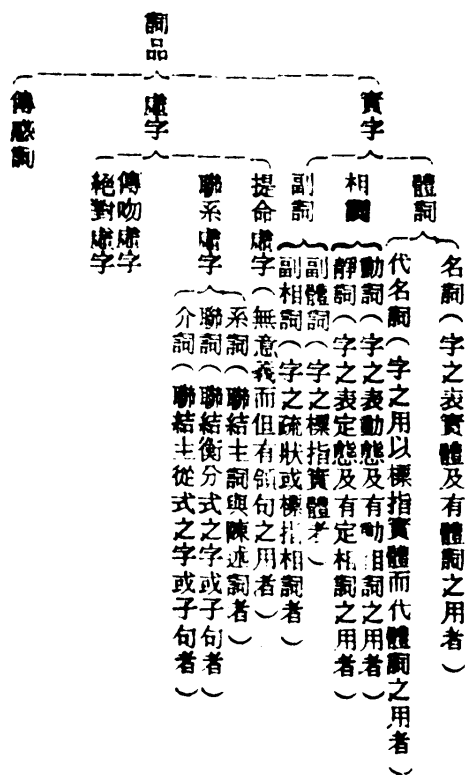 詞品
實字
體詞
名詞（字之表實體及有體詞之用者）
代名詞（字之用以標指實體而代體詞之用者）
相詞
動詞（字之表動態及有動相詞之用者）
靜詞（字之表定態及有定相詞之用者）
副詞
副體詞（字之標指實體者）
副相詞（字之疏狀或標指相詞者）
虛字
提命虛字（無意義而但有領句之用者）
聯系虛字
系詞（聯結主詞與陳述詞者）
聯詞（聯結衡分式之字或子句者）
介詞（聯結主從式之字或子句者）
傳吻虛字
絕對虛字
傳感詞